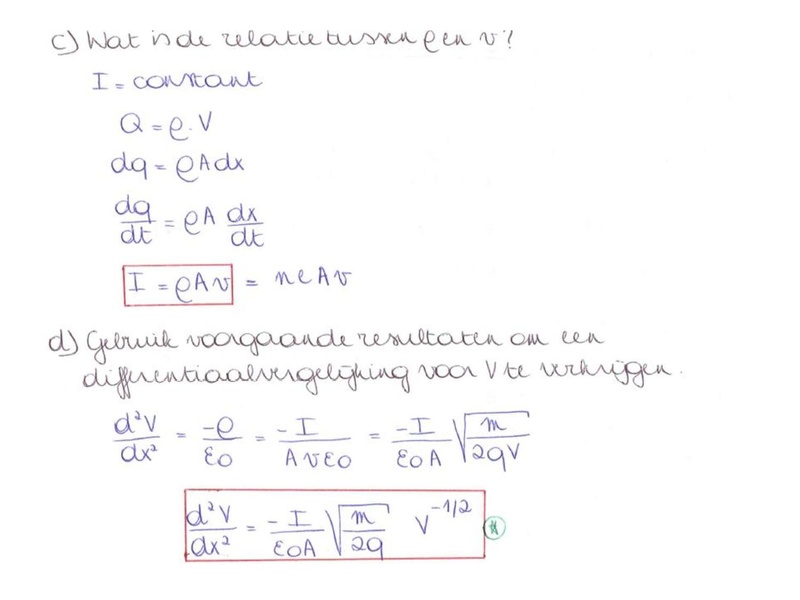 c) Wat is de relatie tussen ρ en v?
I = constant
Q = ρ.V
dq = ρAdx
dq/dt = ρA dx/dt
I = ρAv = neAv
d) Gebruik voorgaande resultaten om een
differentiaalvergelijking voor V te verkrijgen.
d²V/dx² = -ρ/ε0 = -I/Avε0 = -I/ε0A √(m/2qV)
d²V/dx² = -I/ε0A √(m/2q) V^-1/2 (*)